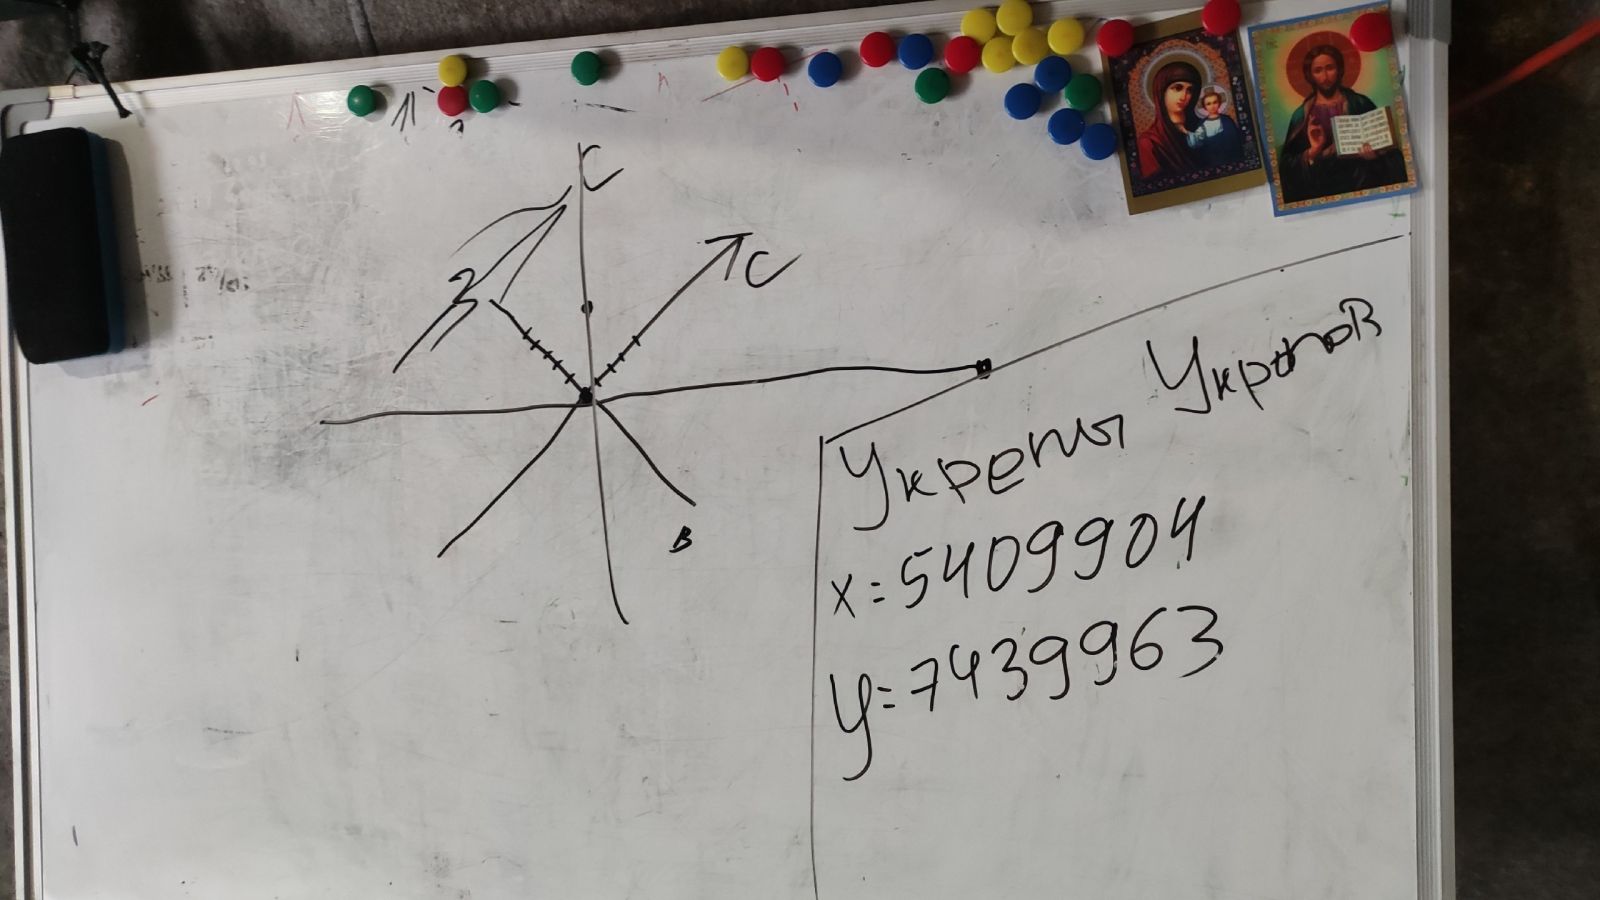 С
З
С
В
Укрепы Укропов
x=5409904
y=7439963